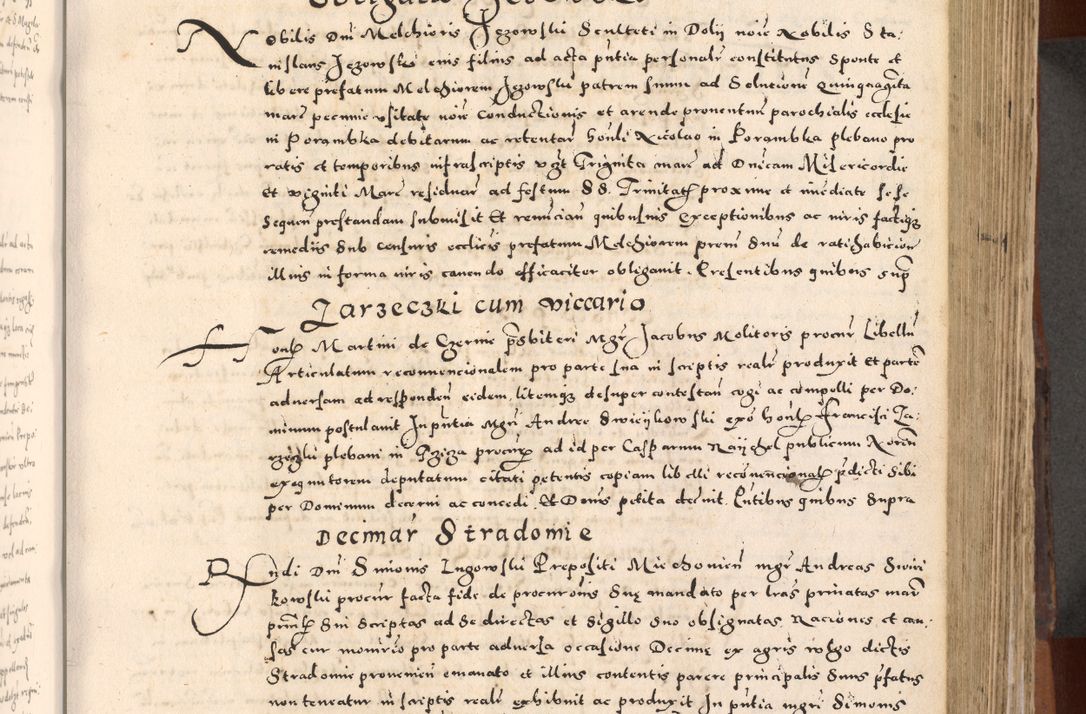 Nobilis Dni Melchioris Jezowski Sculteti in Dolij noie Nobilis Sta-
nislaus Jezowski eius filius ad acta pntia personalr constitutus sponte et
libere prefatum Melchiorem Jezowski patrem suum ad solutionem quinquaginta
marc pecunie usitate noie conductionis et arende proventuum parochialis ecclesie
in Porambka debitarum ac retentar honli Nicolao in Porambka plebano pro
ratis et temporibus infrascriptis vgt Triginta marc ad Dnicam Misericordie
et viginti Marc residuar ad festum SS. Trinitatis proxime et immediate se se
sequen prestandam submisit Et renuncian quibusuis exceptionibus ac iuris factiq
remediis sub censuris ecclicis prefatum Melchiorem prem suu de ratihabicione
illius in forma iuris cauendo efficaciter obligauit. Presentibus quibus sup
Zarzeczki cum viccario
Honl Martini de Czernie prsbiteri Mgr Jacobus Molitoris procur Libellu
Articulatum reconuencionalem pro parte sua in scriptis realr produxit Et parte
aduersam ad responden eidem litemq desuper contestan cogi ac compelli per Do-
minum postulauit In pntia Mgri Andree Swieijkowski exo honl Francisci Za-
rzeczki plebani in procur ad id per Casparum publicum Notriu
exequutorem deputatum citati petentis copiam libelli reconuencional pdicti sibi
per Dominum decerni ac concedi. Et Dnus petita decreuit. Pntibus quibus supra
Decimar Stradomie
Rndi Dni Simonis Lugowski Prepositi Miechouien mgr Andreas Swiei
kowski procur facta fide de procuronis sue mandato per lras priuatas man
ppria Dni scriptas ad se directas et sigillo suo obsignatas. Raciones et cau-
sas cur monirio pro parte aduersa occasione Decime ex agris vulgo dictis
Stradomie prouenien emanato et illius contentis parere principalis suus pfatus
non teneatur in scriptis realr exhibuit ac produxit In pntia mgri Simonis